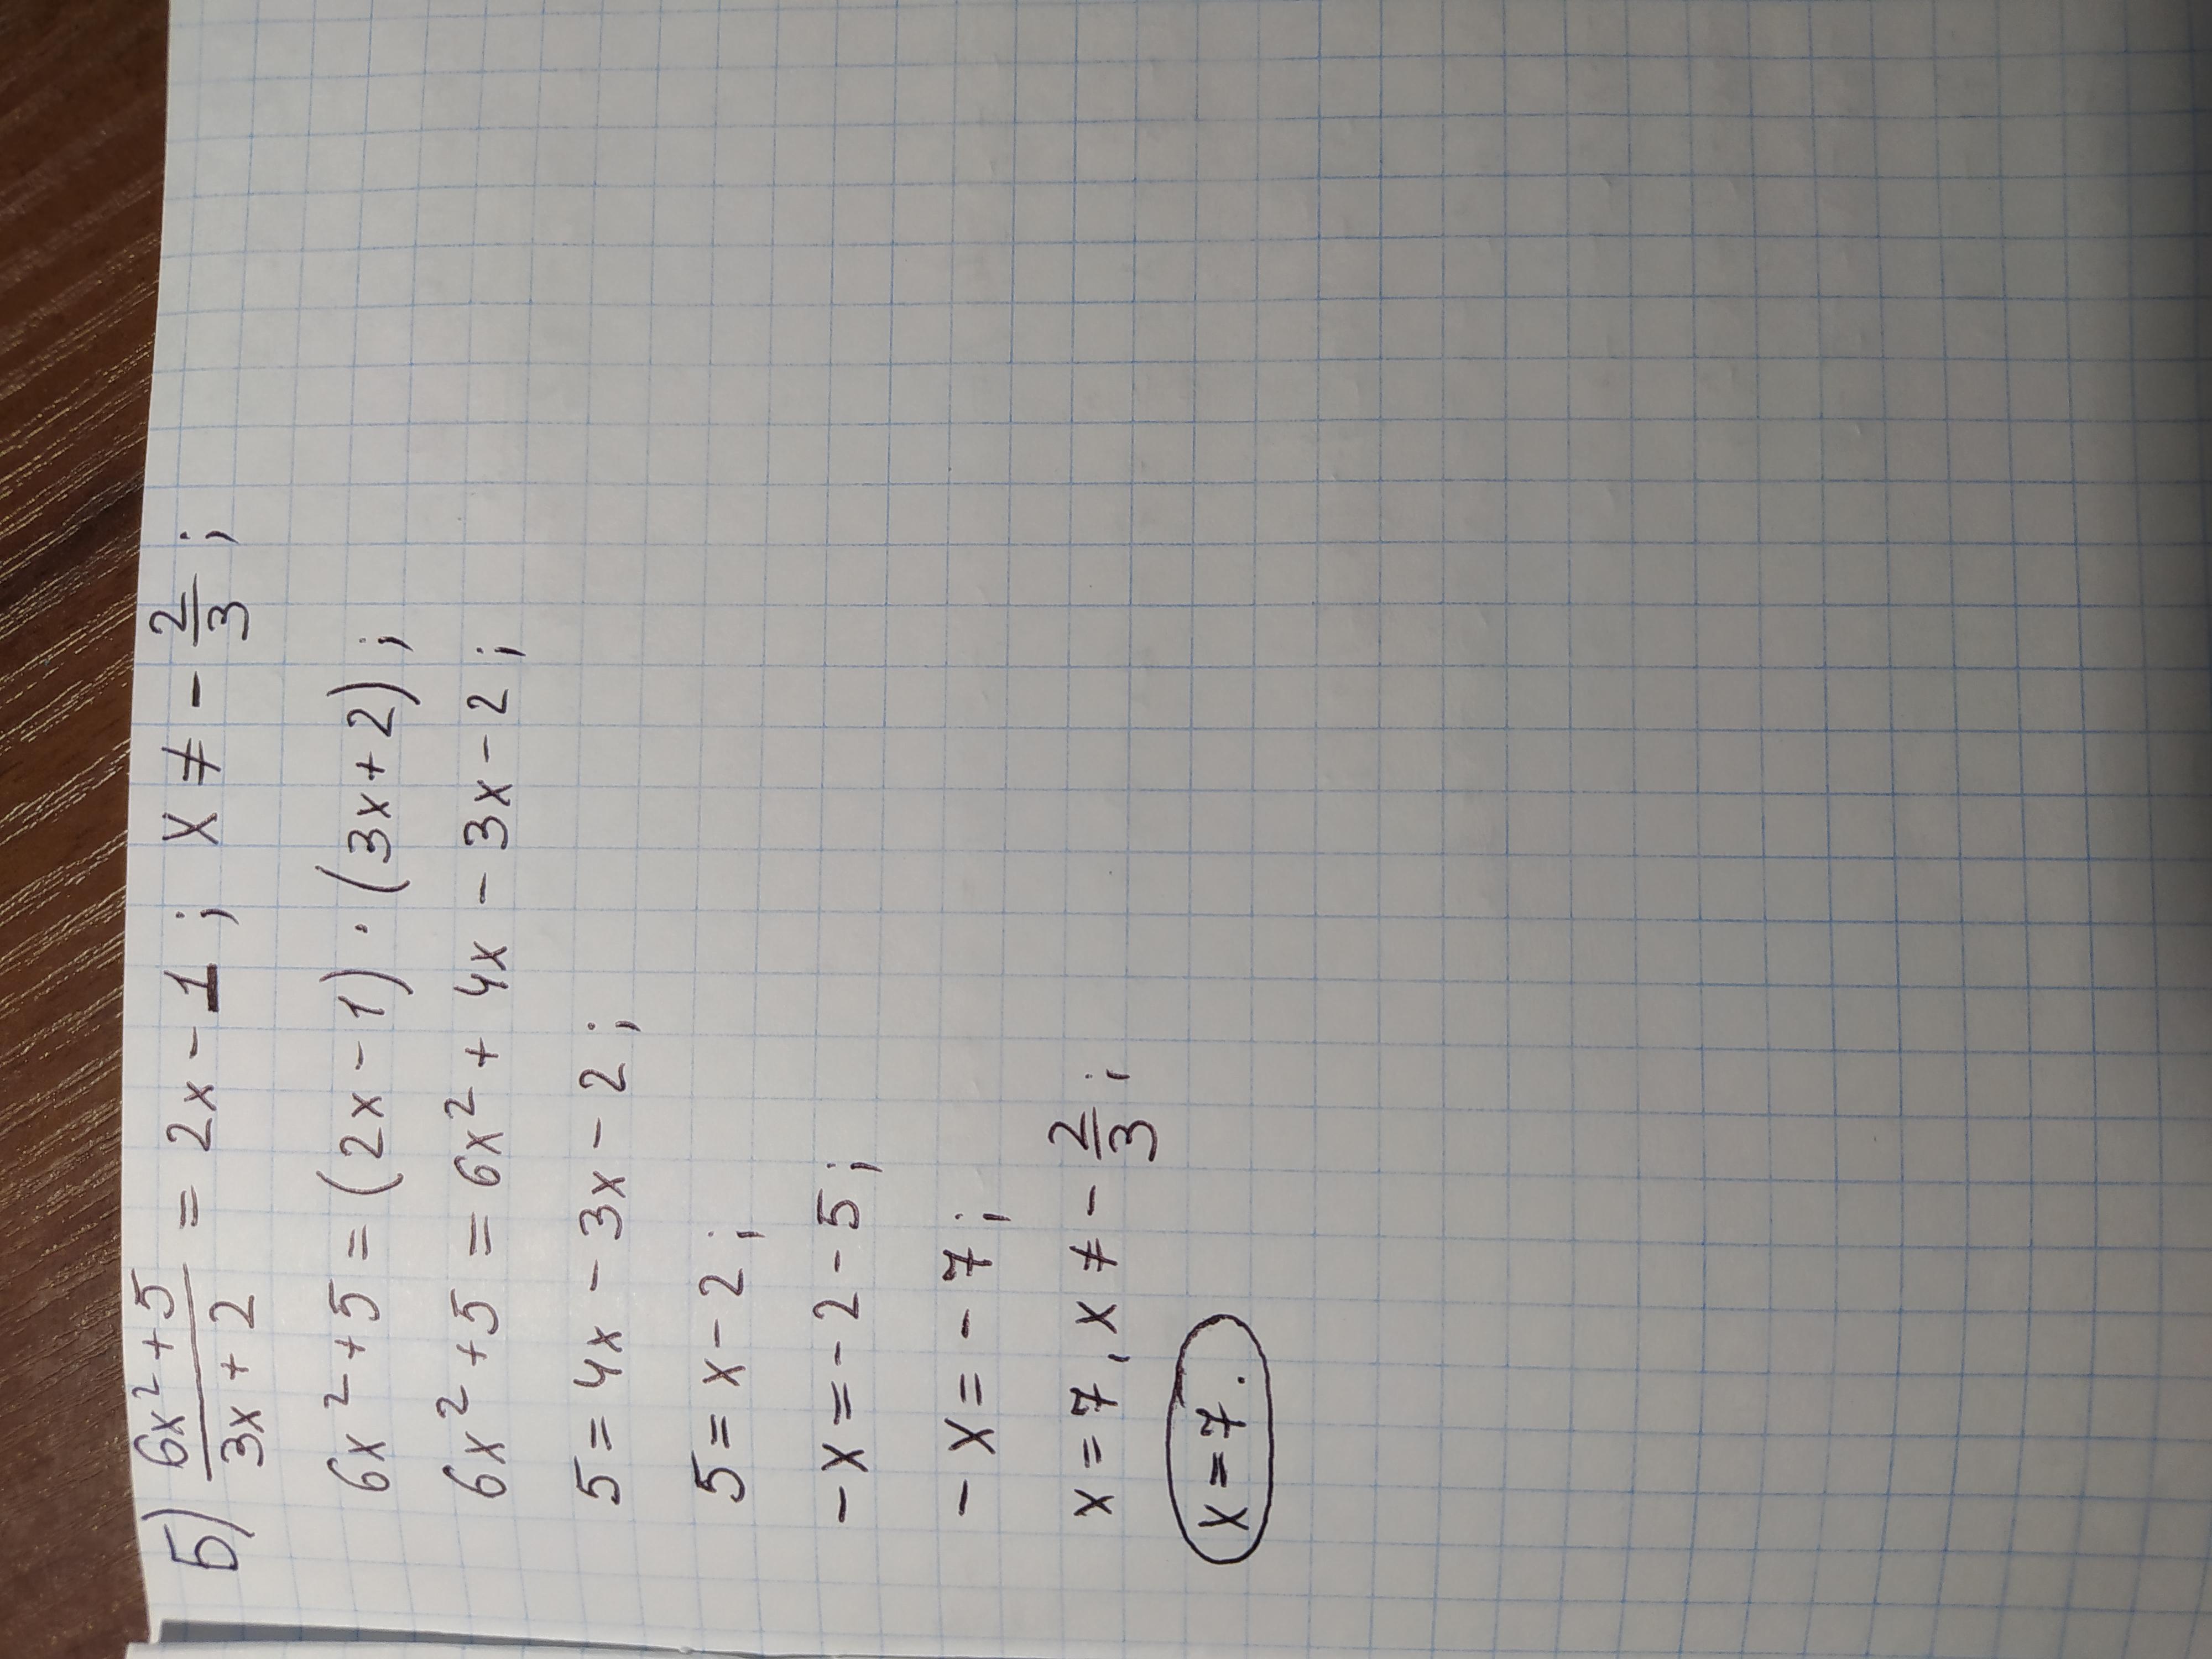 б) (6x²+5)/(3x+2) = 2x-1; x ≠ -2/3;
6x²+5=(2x-1)·(3x+2);
6x²+5=6x²+4x-3x-2;
5=4x-3x-2;
5=x-2;
-x=-2-5;
-x=-7;
x=7, x≠-2/3;
x=7.